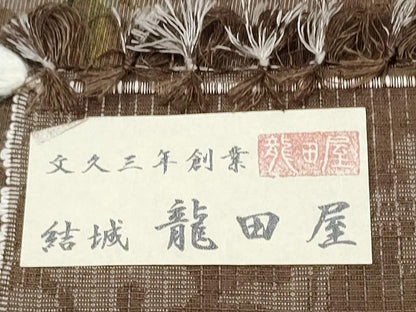 文久三年創業 龍田屋
結城 龍田屋